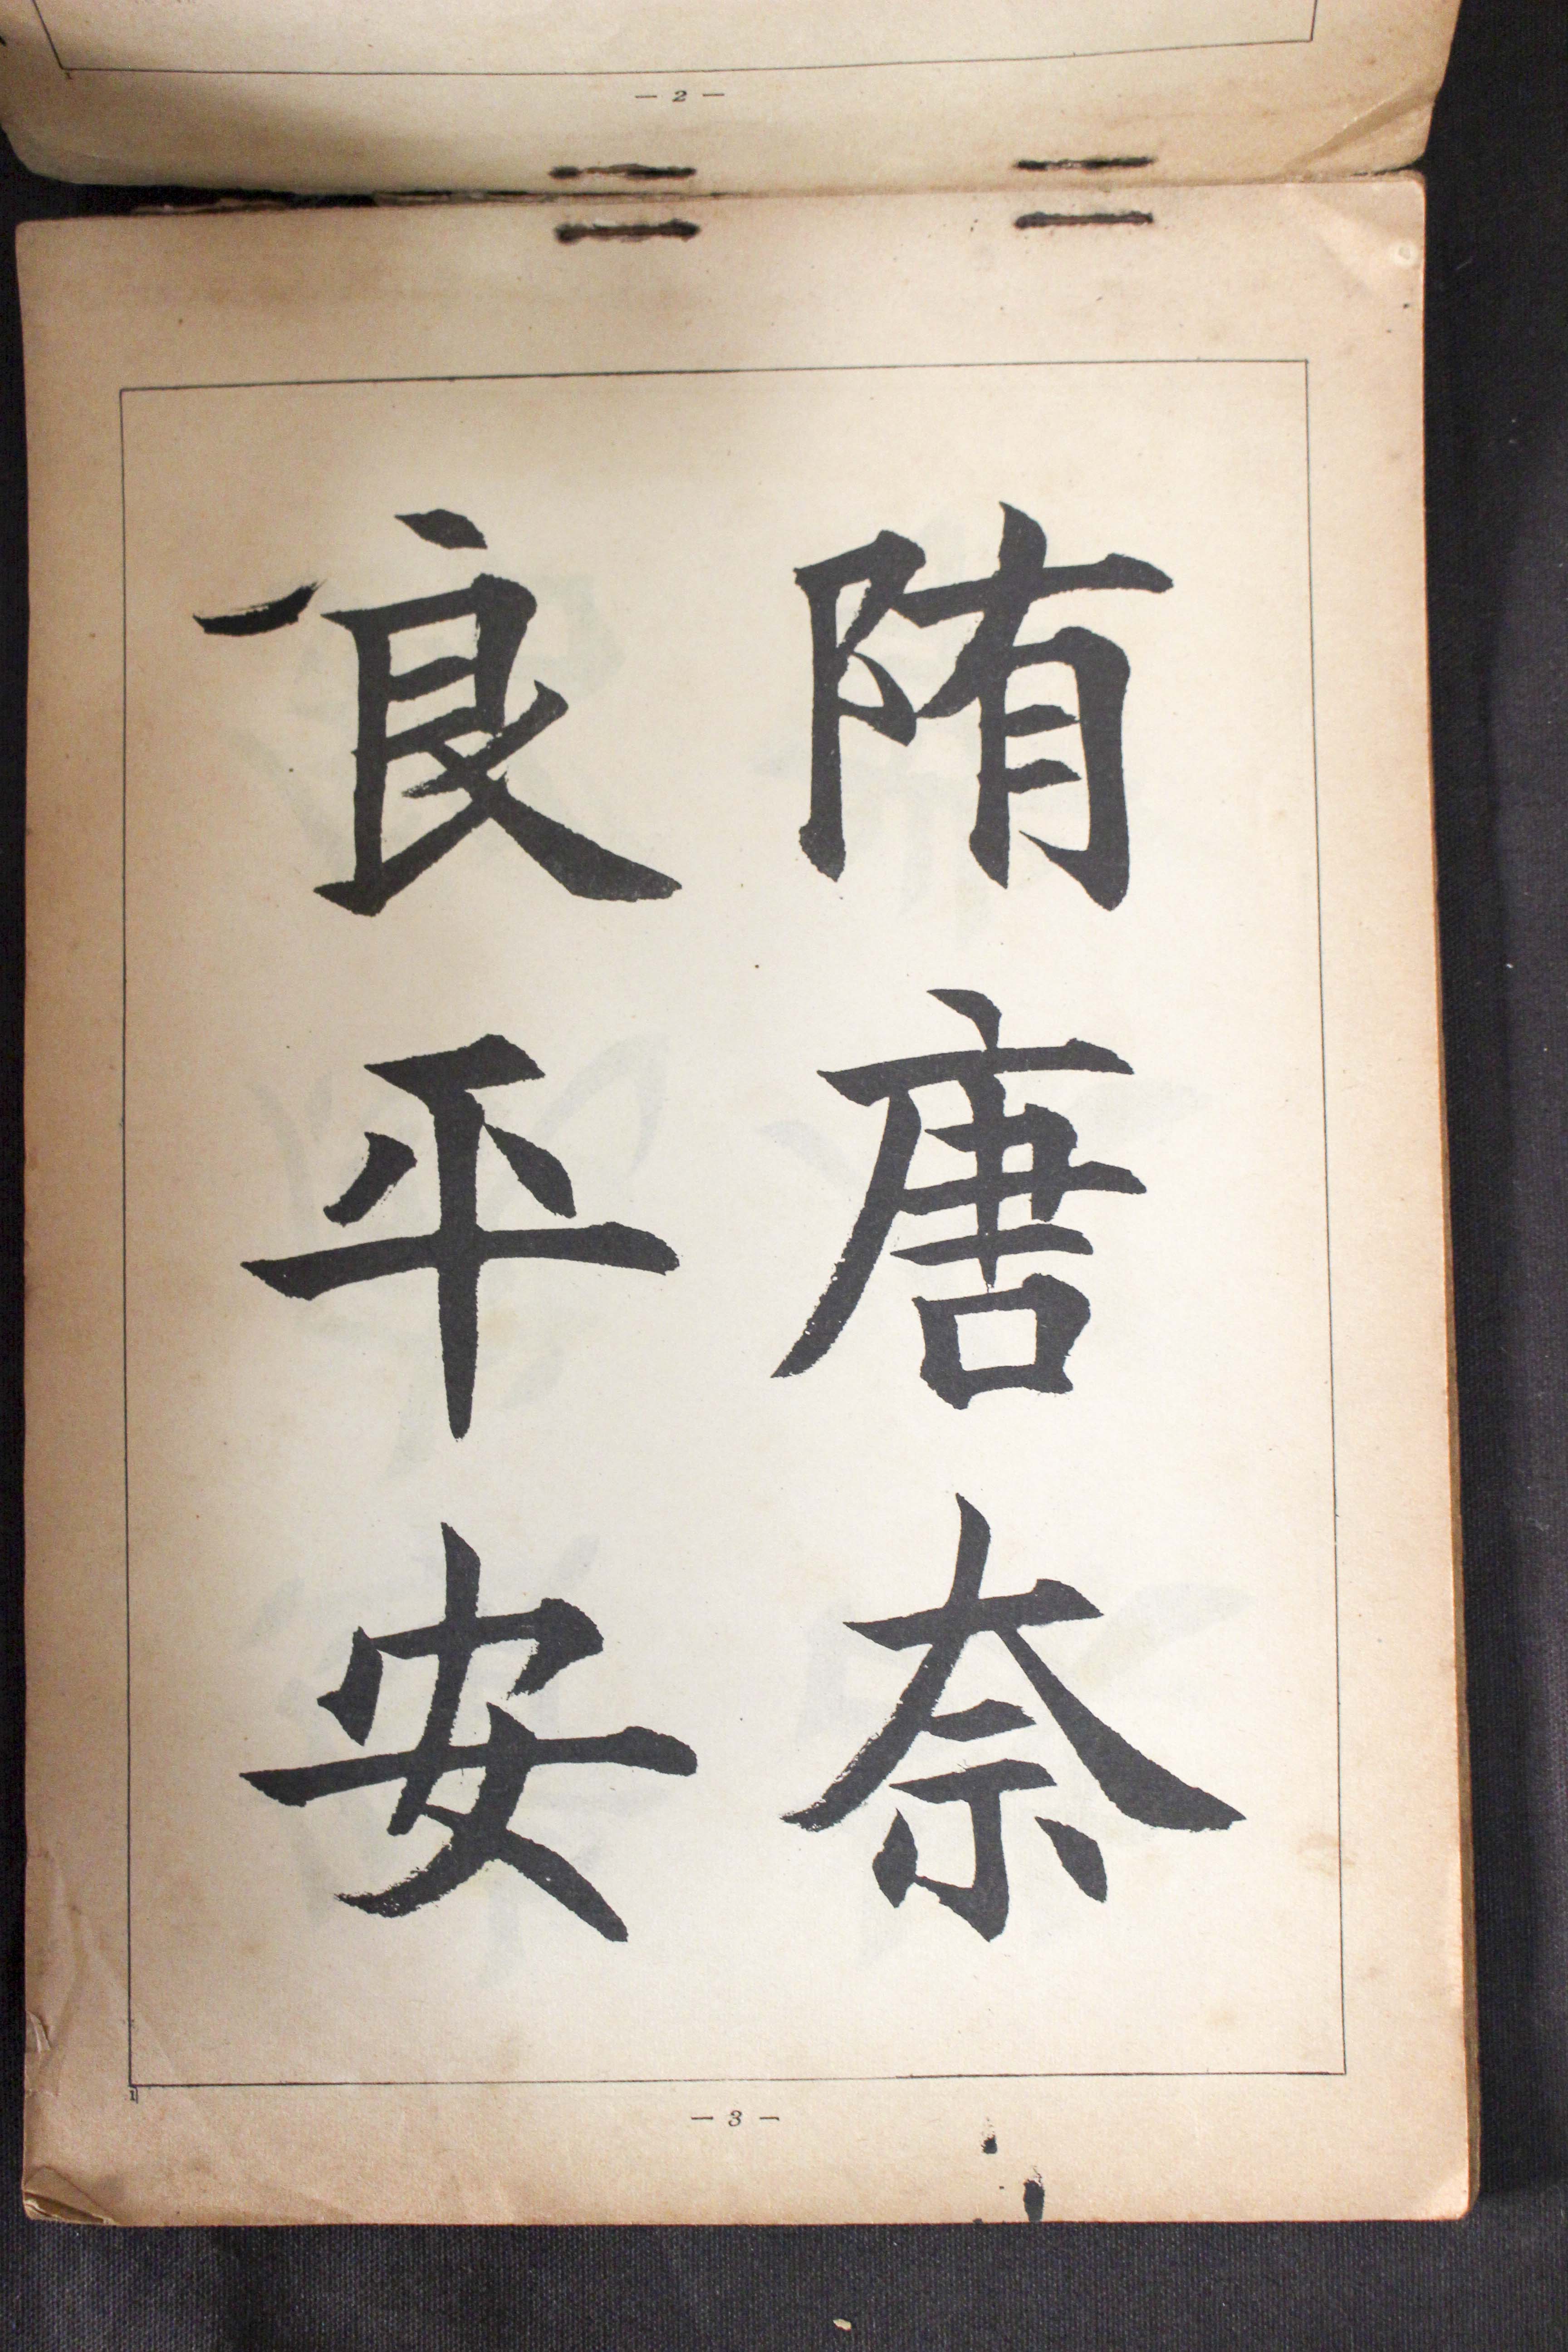 — 2 —
陏唐奈
良平安
— 3 —